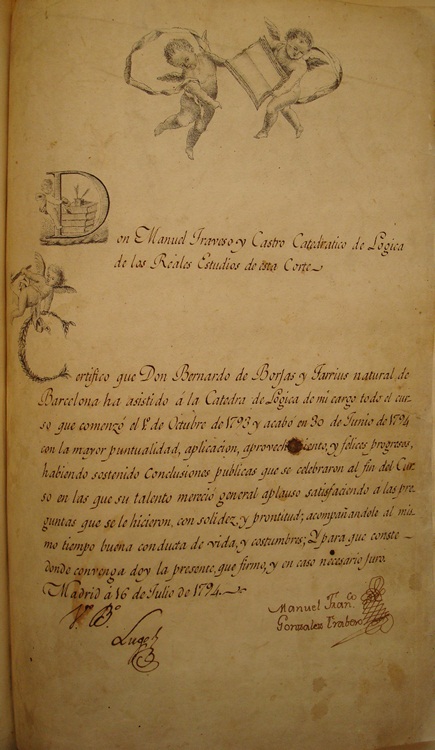 Don Manuel Traveso y Castro Catedratico de Lógica
de los Reales Estudios de ésta Corte
Certifico que Don Bernardo de Borjas y Tarrius natural, de
Barcelona ha asistido á la Catedra de Lógica de mi cargo todo el cur-
so que comenzó el 1º de Octubre de 1793 y acabó en 30 de Junio de 1794
con la mayor puntualidad, aplicacion, aprovechamiento, y felices progresos,
habiendo sostenido Conclusiones publicas que se celebraron al fin del Cur-
so en las que su talento mereció general aplauso satisfaciendo á las pre-
guntas que se le hicieron, con solidez, y prontitud; acompañandole al mis-
mo tiempo buena conducta de vida, y costumbres; Y para que conste
donde convenga doy la presente, que firmo, y en caso necesario juro.
Madrid á 16 de Julio de 1794.
V.º B.º
Manuel Fran.co
Gonzalez